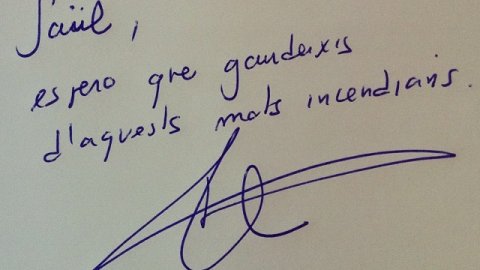 Saül,
espero que gaudeixis
d'aquests mots incendiaris.